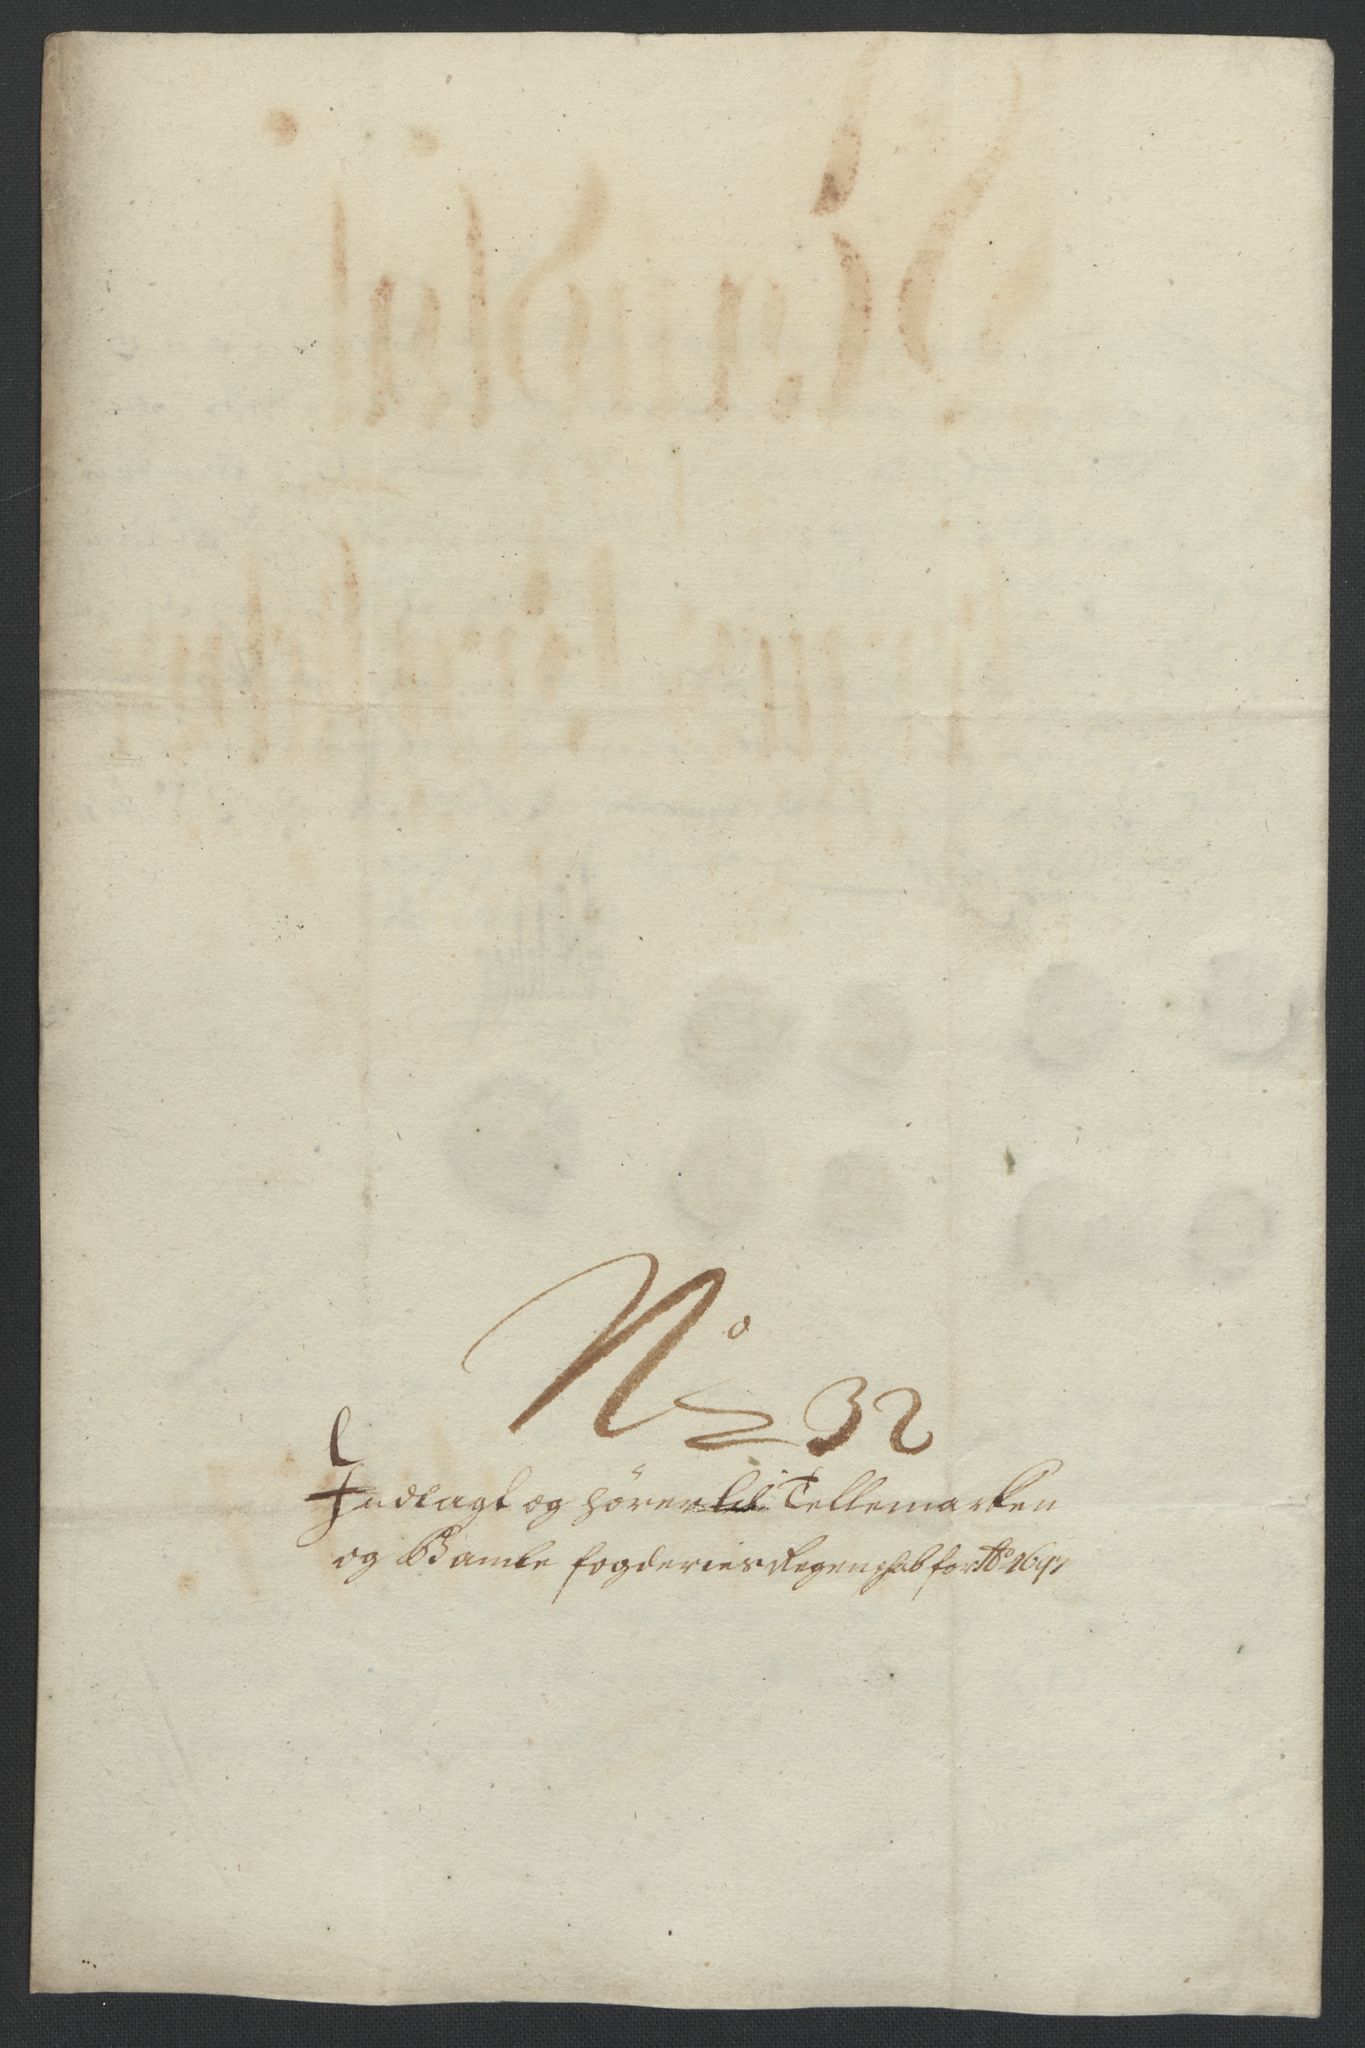 No 32
Indlagt og hører til Tellemarken
og Bamle fogderies Regenschab for Ao 1697